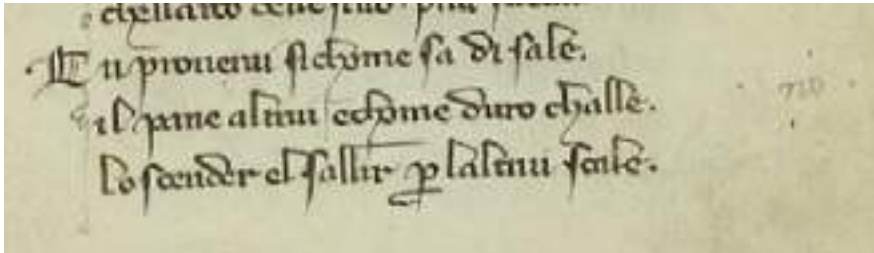 Tu prouerai sichome sa di sale.
il pane altrui echome duro challe.
lo scender el sallir ꝑ laltrui scale.